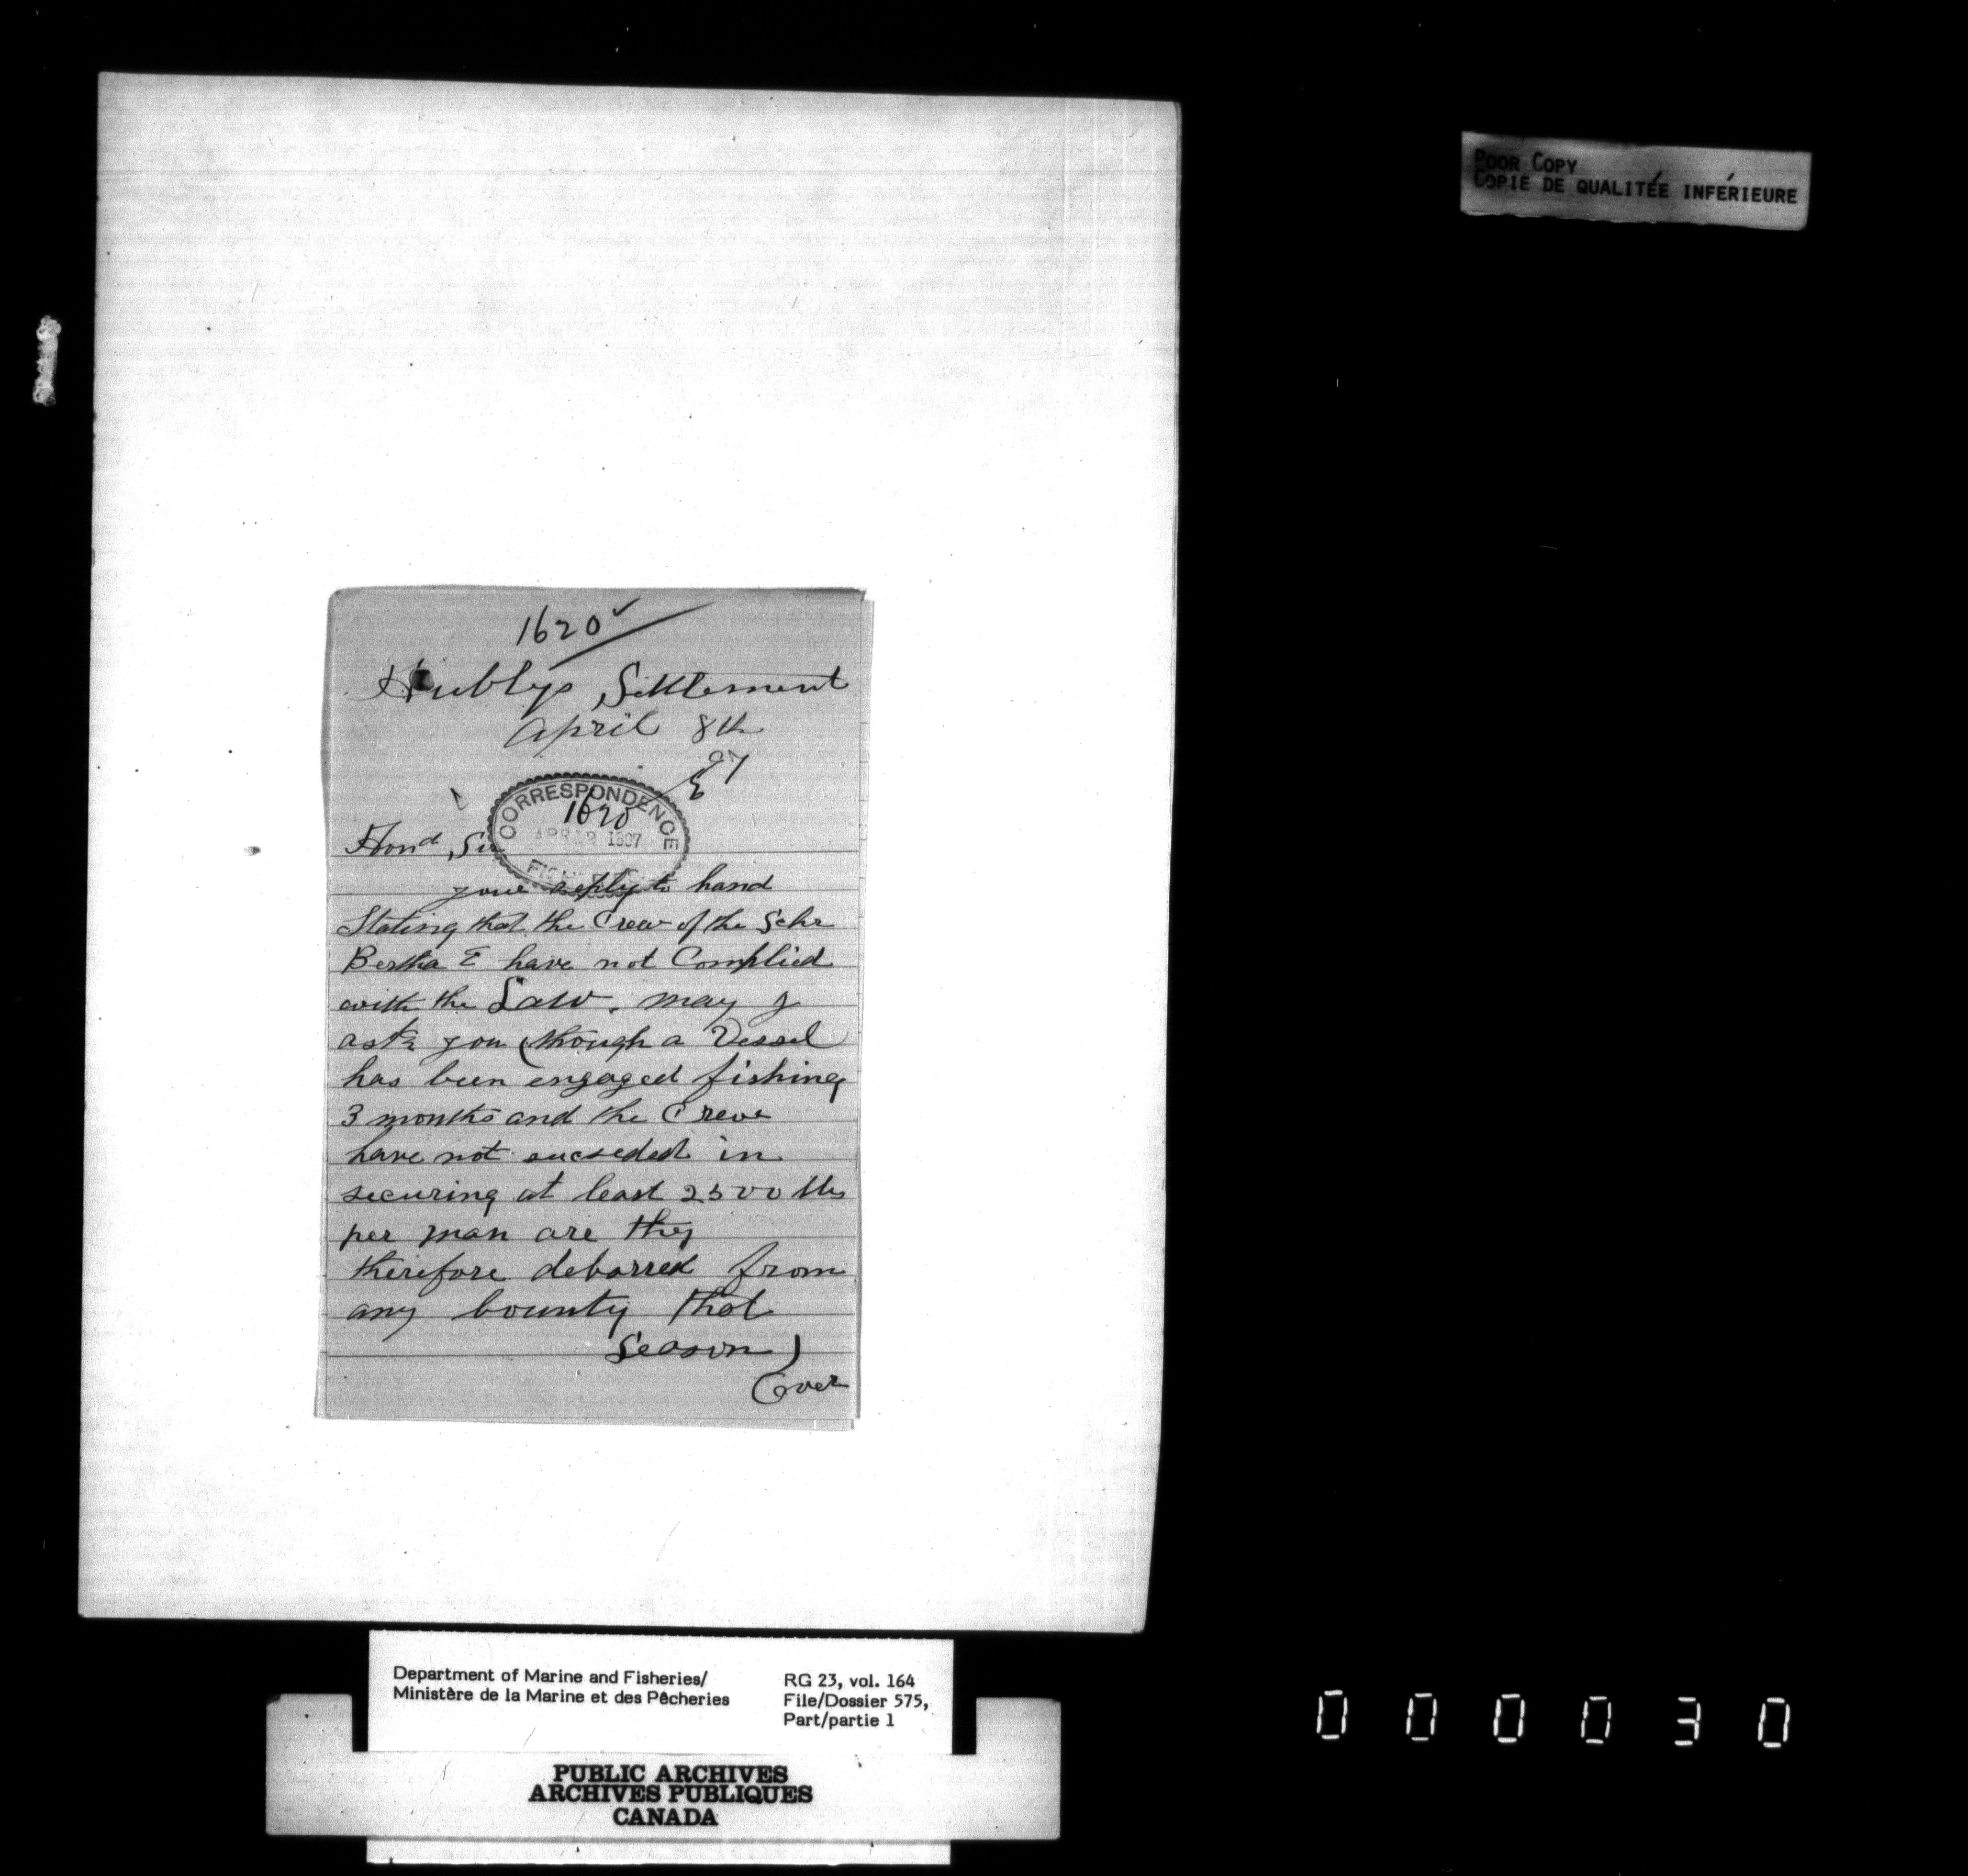 POOR COPY
COPIE DE QUALITÉE INFÉRIEURE
1620
Hublys Settlement
April 8th
97
CORRESPONDENCE
1620
APR 12 1897
Hond Sir
your reply to hand
Stating that the Crew of the Schr
Bertha E have not Complied
with the Law. may I
ask you (though a Vessel
has been engaged fishing
3 months and the Crew
have not sucseded in
securing at least 2500 lbs
per man are they
therefore debarred from
any bounty that
Season)
(over
Department of Marine and Fisheries/
Ministère de la Marine et des Pêcheries
RG 23, vol. 164
File/Dossier 575,
Part/partie 1
PUBLIC ARCHIVES
ARCHIVES PUBLIQUES
CANADA
000030